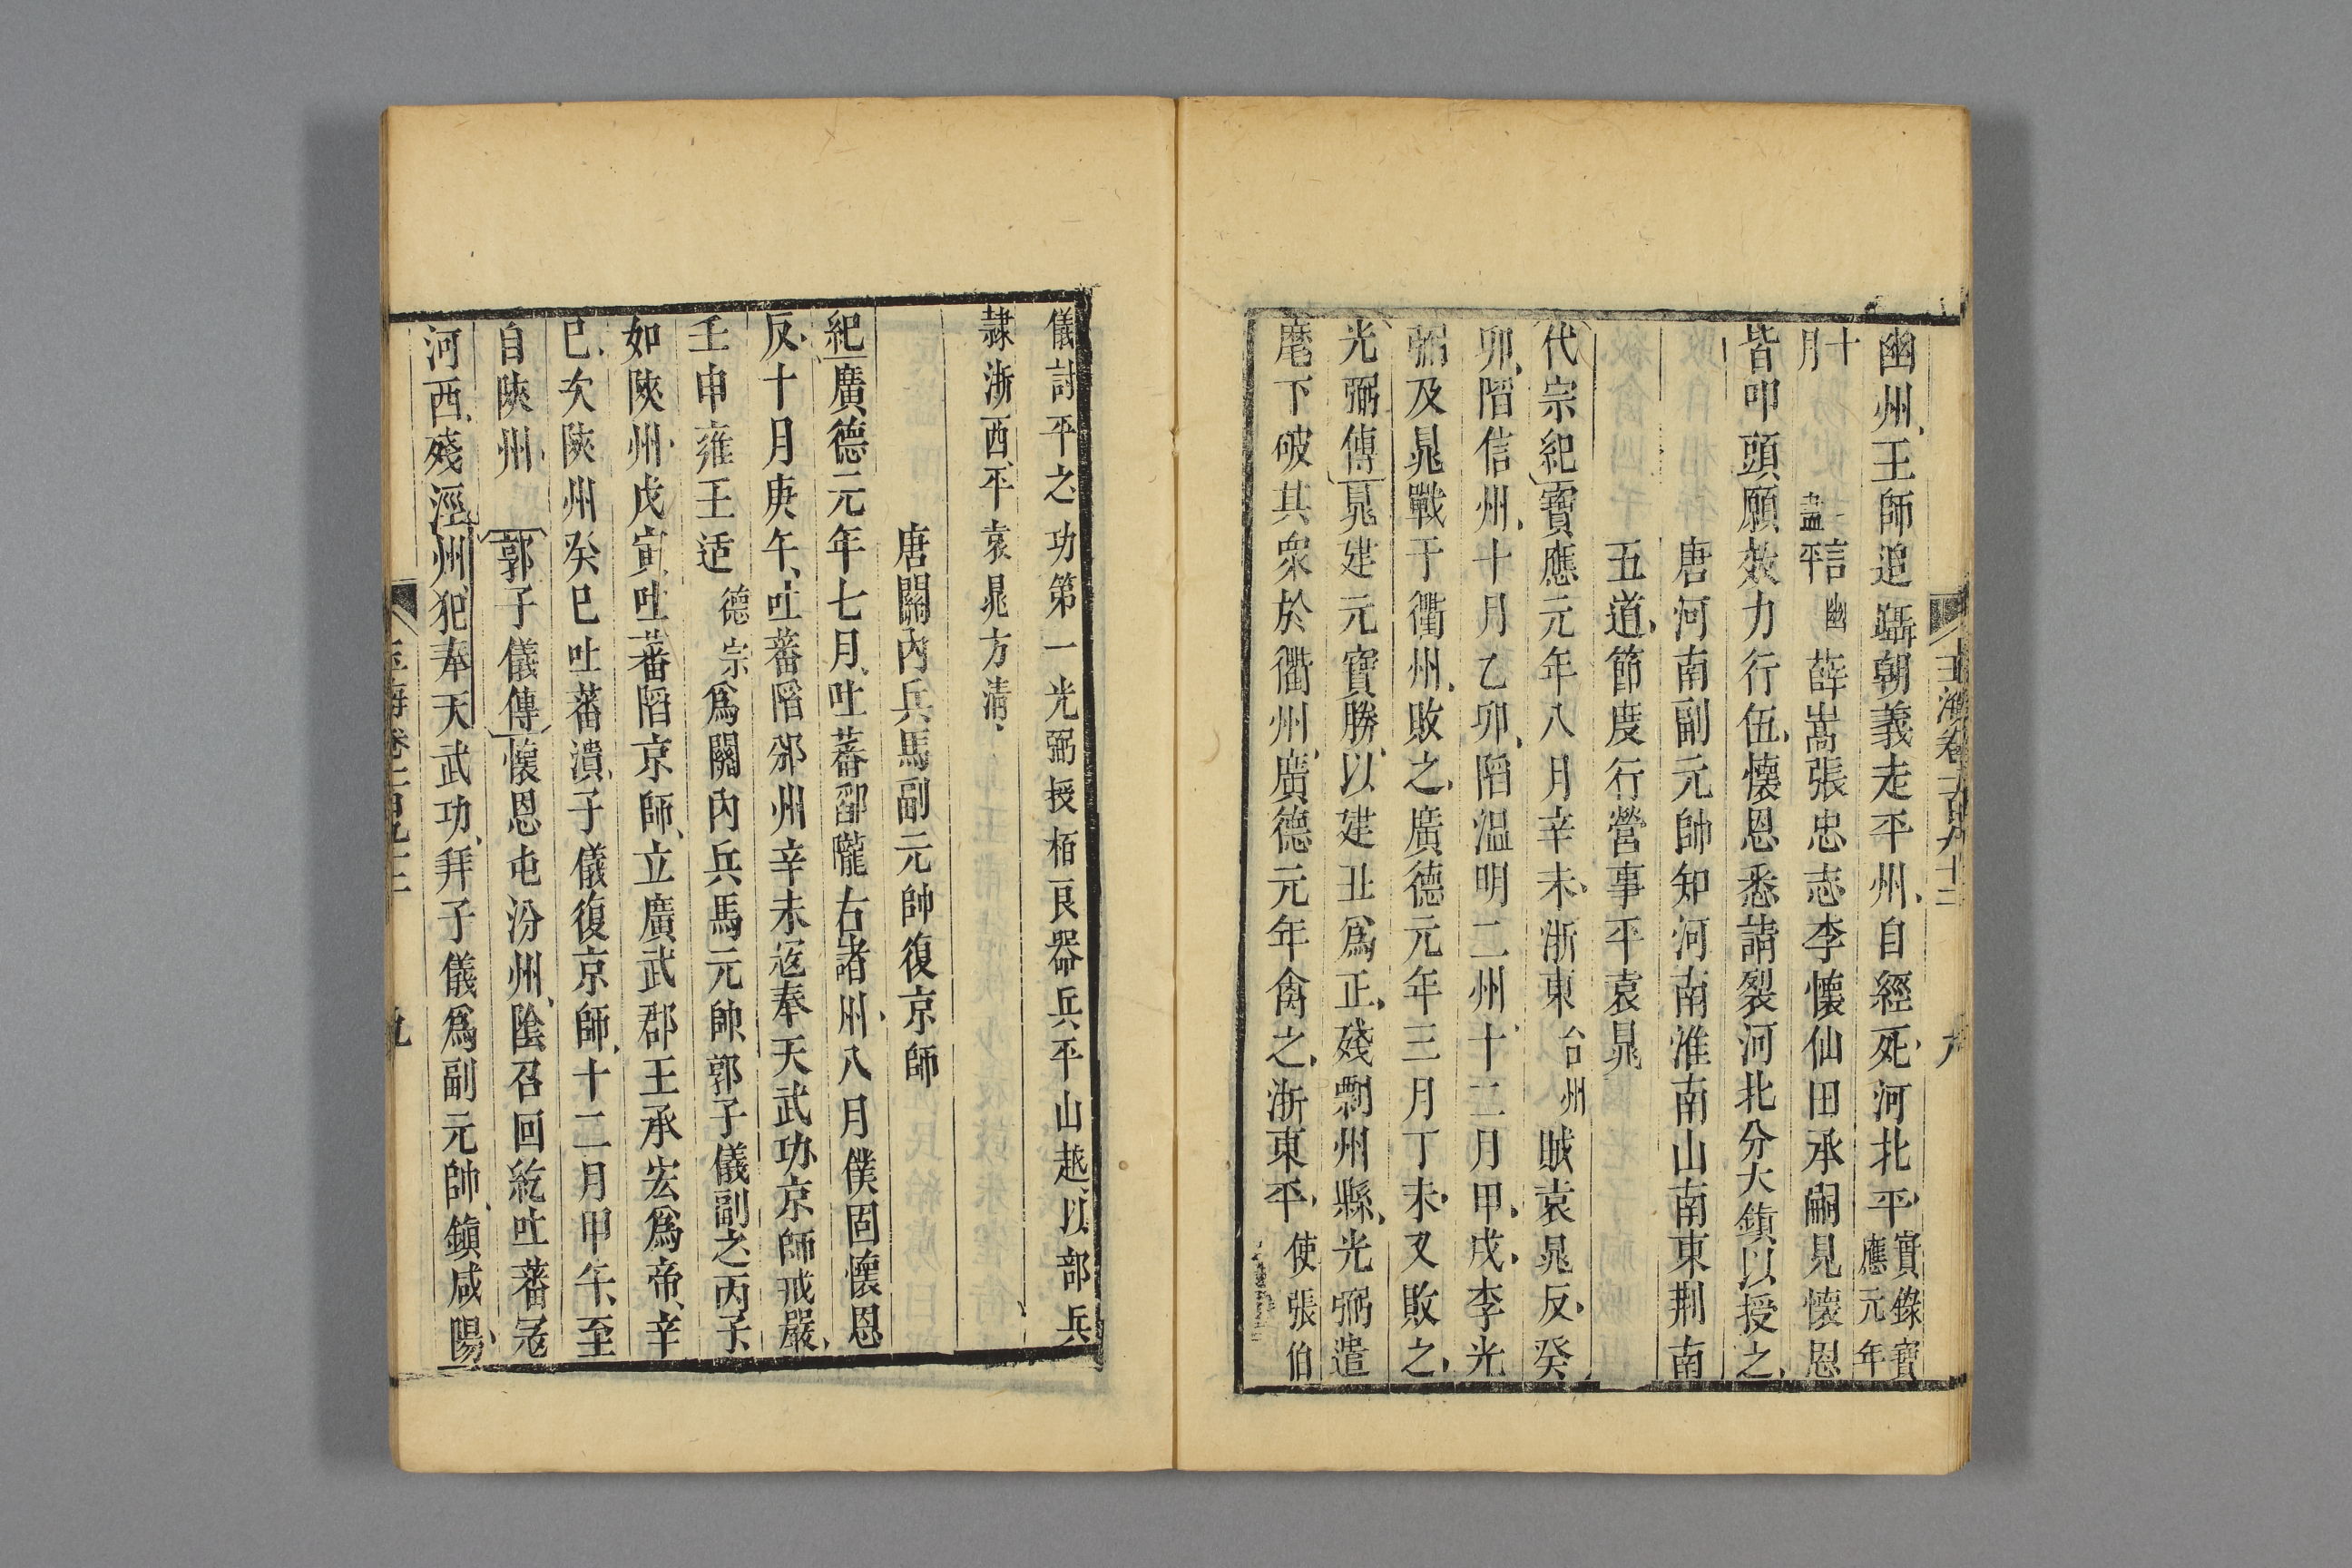 幽州、王師追躡朝義走平州、自經死、河北平、實錄寶應元年
十月盡言平幽薛嵩張忠志李懷仙田承嗣見懷恩
皆叩頭願效力行伍、懷恩悉請裂河北分大鎮以授之、
唐河南副元帥知河南淮南山南東荆南
五道、節度行營事平袁晁
代宗紀寶應元年八月辛未、浙東台州賊袁晁反、癸
卯、陷信州、十月乙卯、陷温明二州、十二月甲戌、李光
弼及晁戰于衢州、敗之、廣德元年三月丁未、又敗之、
光弼傳晁建元寶勝、以建丑爲正、殘剽州縣、光弼遣
麾下破其衆於衢州、廣德元年禽之、浙東平、使張伯
儀討平之功第一光弼授栢良器兵平山越、以部兵
隷浙西、平袁晁方清、
唐關內兵馬副元帥復京師
紀廣德元年七月、吐蕃郃隴右諸州、八月僕固懷恩
反、十月庚午、吐蕃陷邠州辛未寇奉天武功、京師戒嚴、
壬申雍王适德宗爲關內兵馬元帥、郭子儀副之、丙子
如陜州、戊寅、吐蕃陷京師、立廣武郡王承宏爲帝、辛
巳、次陜州癸巳吐蕃潰、子儀復京師、十二月甲午、至
自陜州、郭子儀傳懷恩屯汾州、陰召回紇吐蕃寇
河西、殘涇州、犯奉天武功、拜子儀爲副元帥、鎮咸陽、